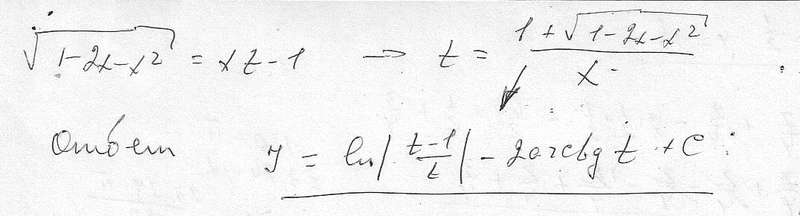 √(1-2x-x²) = xt-1 → t = (1+√(1-2x-x²))/x
Ответ J = ln|(t-1)/t| - 2arctg t + C